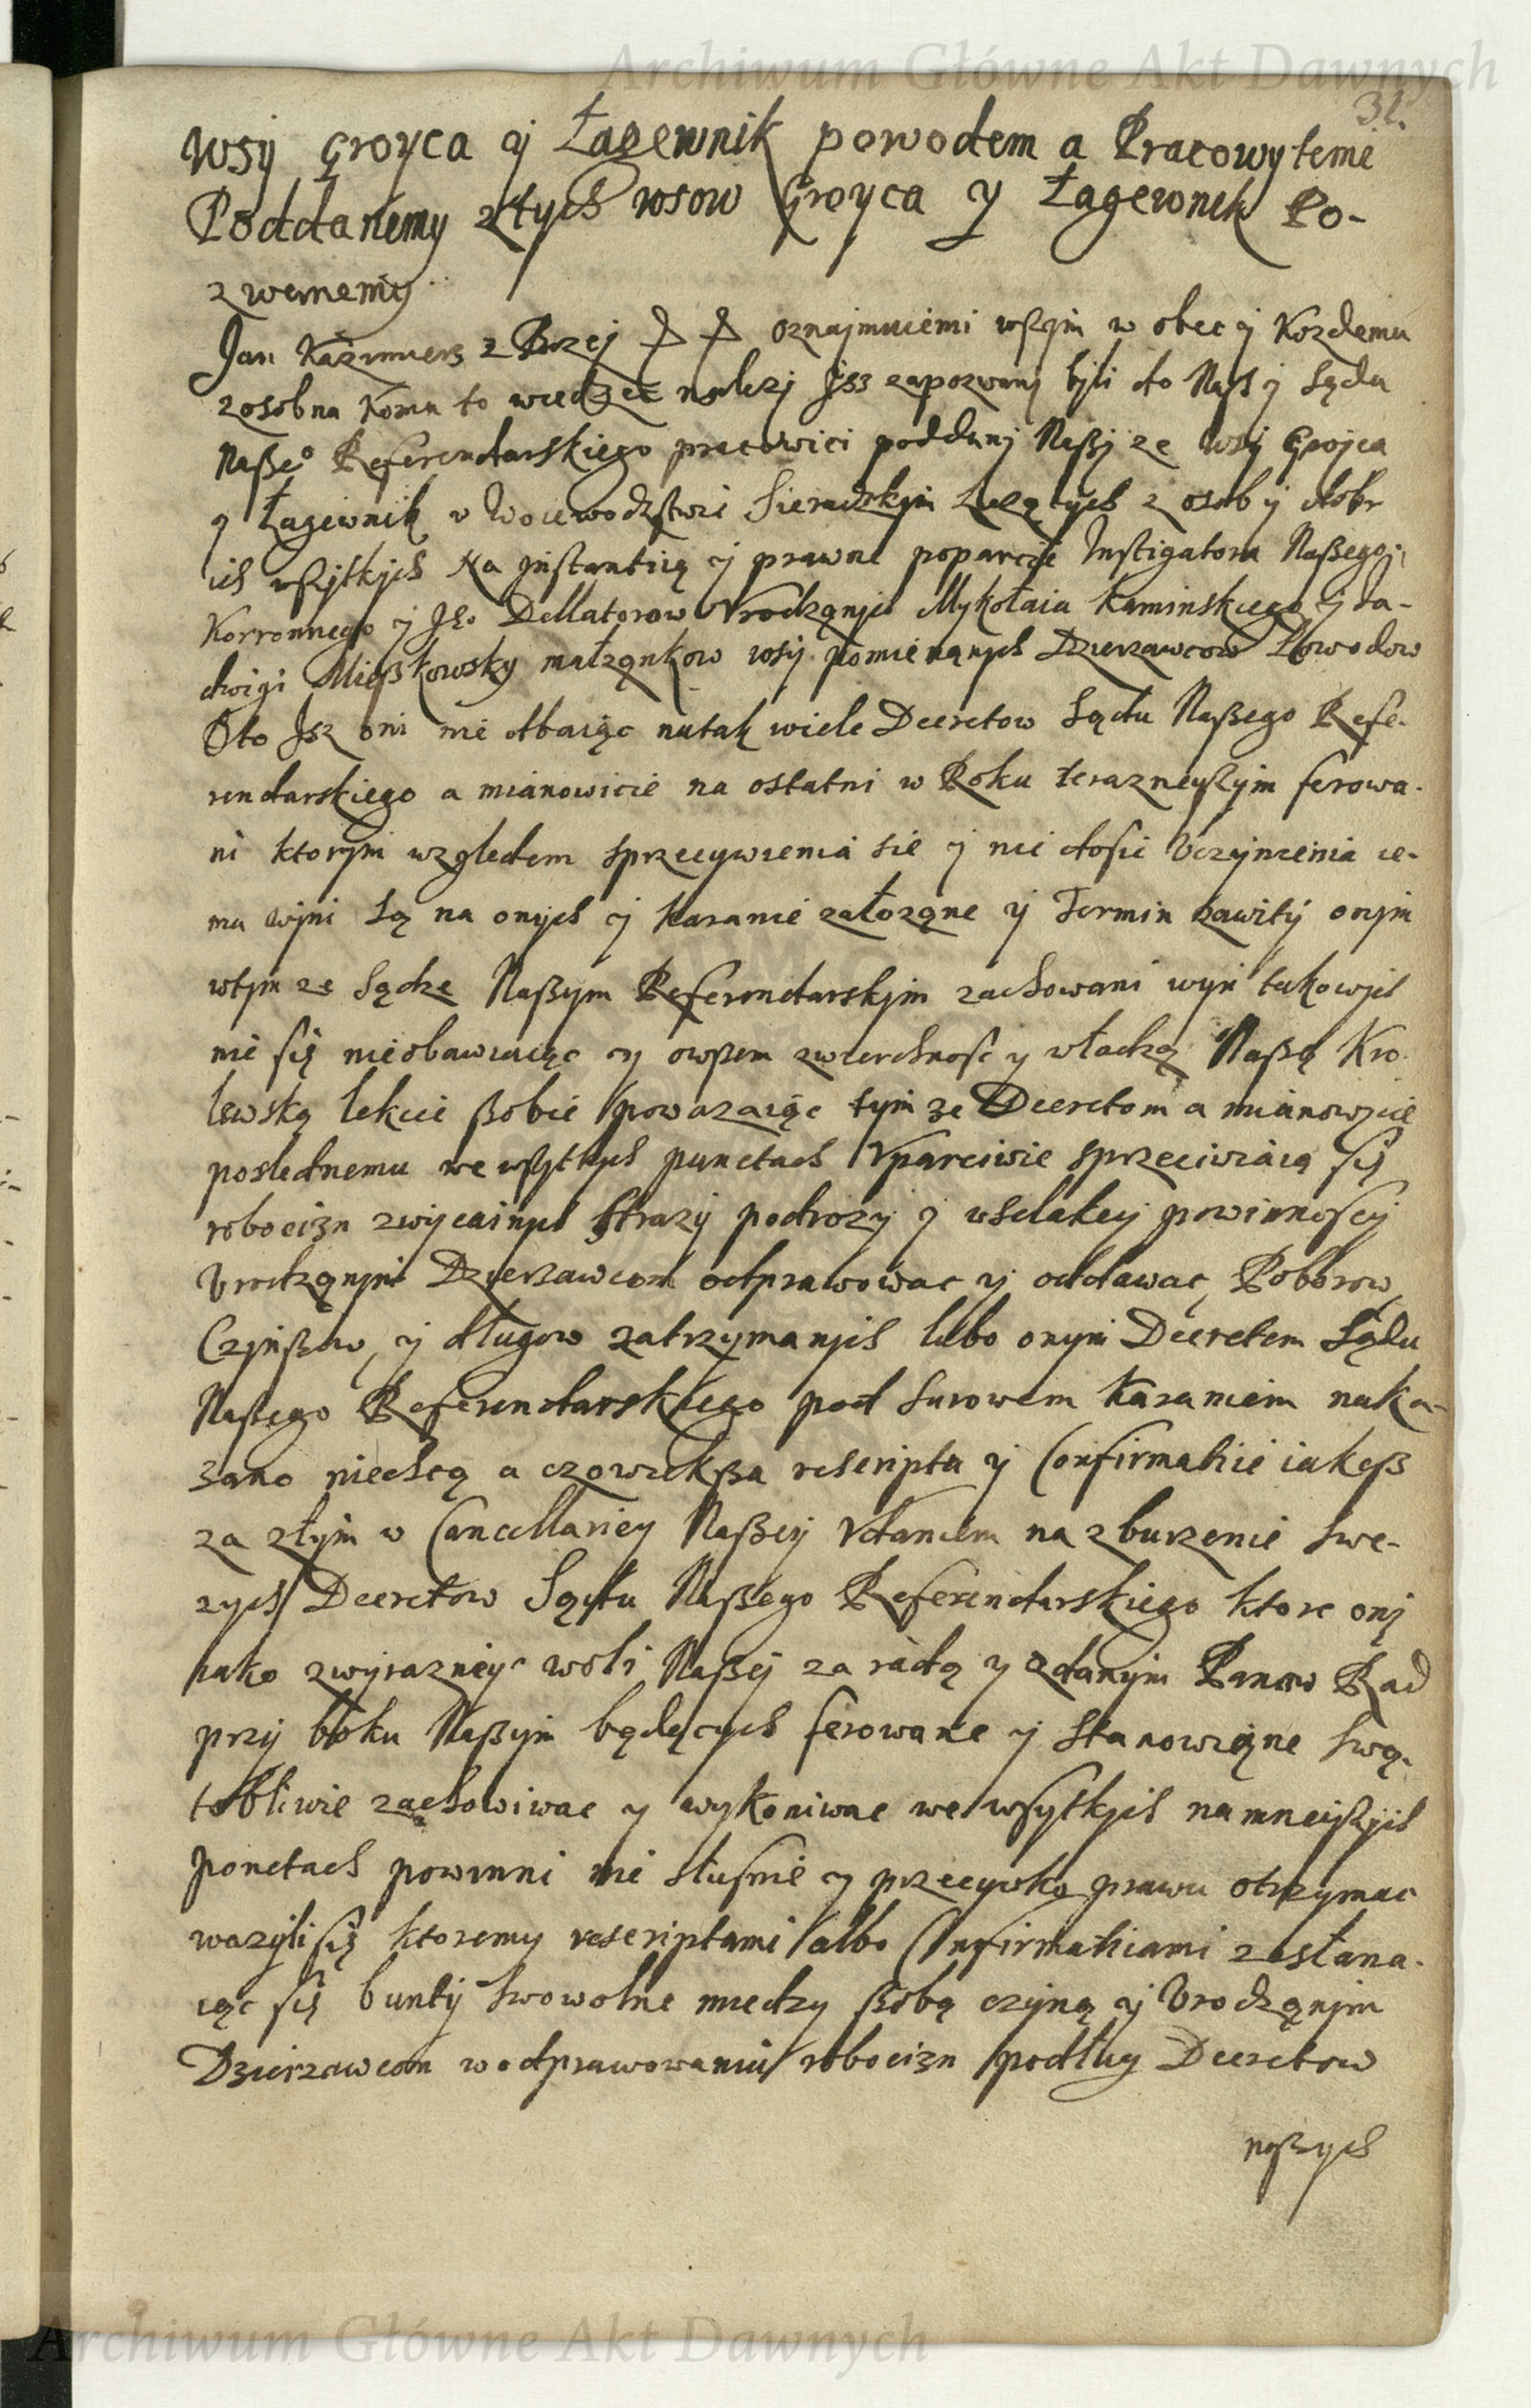 Archiwum Główne Akt Dawnych
31.
Wsÿ Groyca ÿ Łagewnik powodem a Pracowytemi
Poddanemy ztych wsow Groyca y Łagewnik Po-
zwanemy
Jan Kazimierz z Bozej oznajmuiemi wszÿm w obec ÿ Kozdemu
zosobna Komu to wiedzec nalezÿ Jsz zapozwanÿ bÿli do Nas ÿ Sądu
Naßeo Referendarskiego pracowici poddanÿ Naßÿ ze Wsÿ Groÿca
y Łagiewnik w Woiewodztwie Sieradzkÿm z osob ÿ dobr
ich wszÿtkich Na instantią ÿ prawne poparcie Instigatora Naßego
Korronnego ÿ Je° Dellatorow Vrodząnÿch Mÿkołaia Kaminskiego ÿ Ja-
dwigi Mieskowskÿ małząnkow wsÿ pomienąnÿch Dzierzawcow Powodow
Oto Jsz oni nie dbaiąc natak wiele Decretow Sądu Naßego Refe-
rendarskiego a mianowicie na ostatni w Roku terazneyszÿm ferowa-
ni ktorÿm wzgledem sprzecywienia sie ÿ nie dosic Vczÿnienia ie-
mu wÿni są na onÿch ÿ karanie załozone ÿ Termin zawitÿ onÿm
wtÿm ze Sądzę Naßym Referendarskÿm zachowani wÿn takowÿch
nie się nieobawiaiąc ÿ owßem zwierchnosc y władzą Naßą Kro-
lewską lekcie ßobie powazaiąc tÿm ze Decretom a mianowicie
poslednemu we wszÿtkich punctach Vparciwie sprzeciwiaią się
robocizn zwÿcainÿch Strazÿ podrozÿ ÿ wselakeÿ powinnoscÿ
Vrodząnÿm Dzierzawcom odprawowac ÿ oddawac, Poborow,
Czÿnßow, ÿ długow zatrzÿmanÿch lubo onÿm Decretem Sądu
Naßego Referendarskiego pod surowem karaniem naka-
zano niechcą a czowieksza rescripta ÿ Confirmatie iakeß
za złÿm w Cancellarieÿ Naßeÿ Vdaniem na zburzenie swe-
zych Decretow Sądu Naßego Referendarskiego ktore onÿ
iako zwÿrazneÿ woli Naßeÿ za radą ÿ zdanÿm Panow Rad
przÿ boku Naßÿm będącÿch ferowane ÿ stanowiąne swą-
tobliwie zachowiwac ÿ wykoniwac we wsÿtkich namneiszÿch
ponctach powinni nie słusnie ÿ przecywko prawu otrzymac
wazÿli się ktoremÿ rescriptami albo Confirmatiami zasłana-
iąc się buntÿ swowolne miedzy ßobą czÿnią ÿ Vrodząnÿm
Dzierzawcom wodprawowaniu robocizn podług Decretow
naßych
Archiwum Główne Akt Dawnych